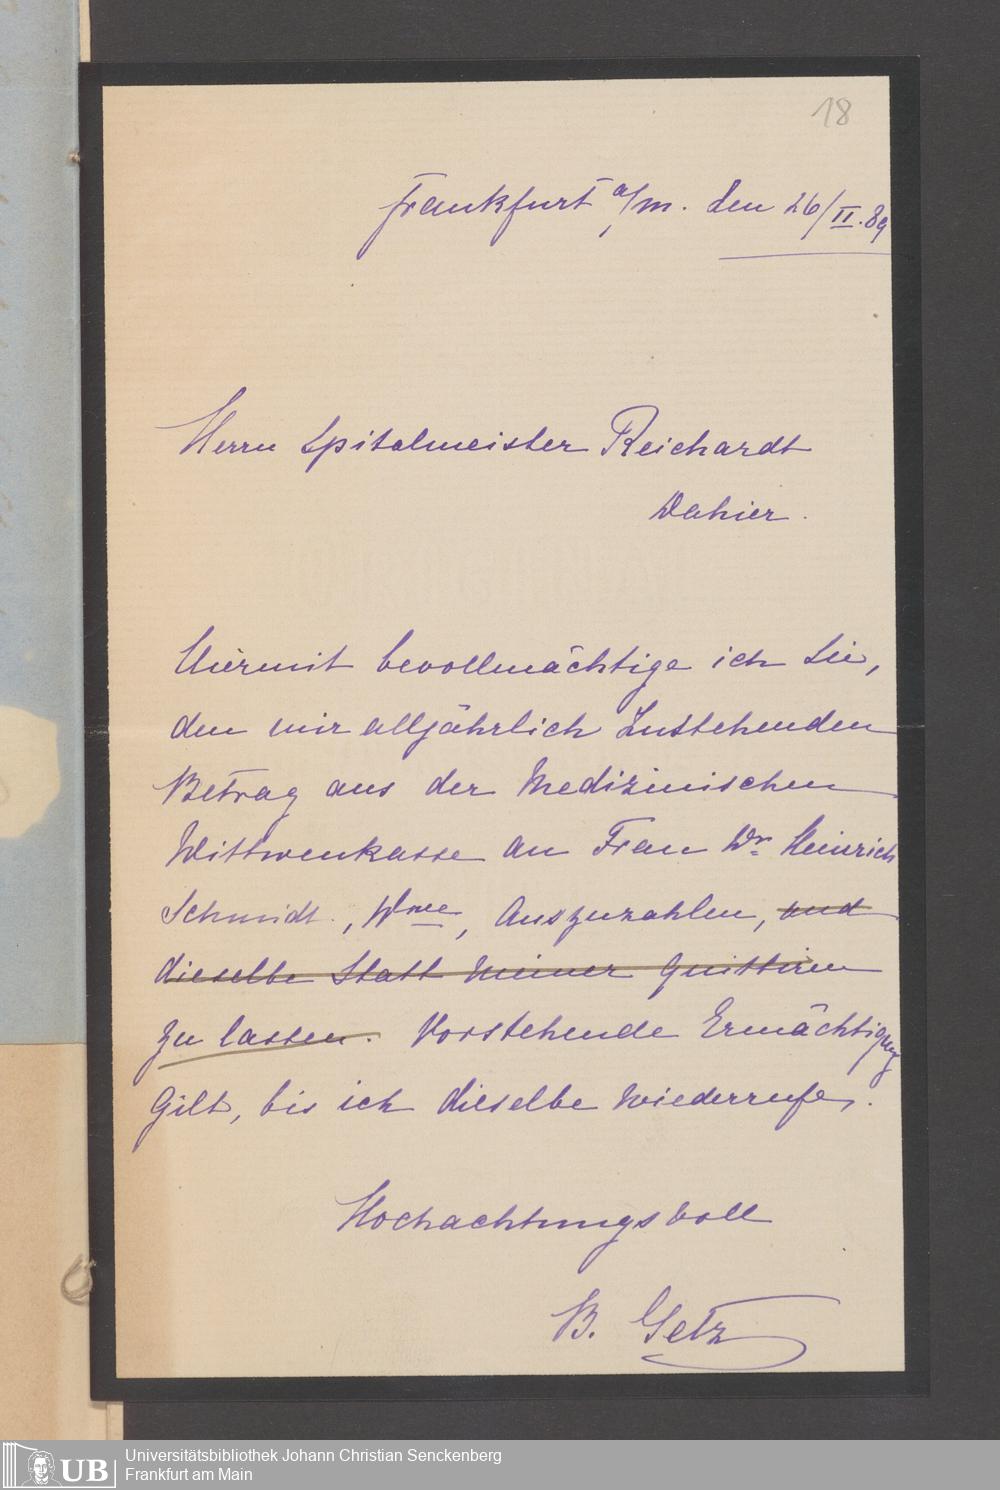 18
Frankfurt a/m. den 26/II.89
Herrn Spitalmeister Reichardt
Dahier.
Hiermit bevollmächtige ich Sie,
den mir alljährlich Zustehenden
Betrag aus der Medizinischen
Wittwenkasse an Frau Dr. Heinrich
Schmidt., Wwe, Auszuzahlen, und
dieselbe Statt Meiner Quittiren
zu lassen. Vorstehende Ermächtigung
Gilt, bis ich dieselbe Wiederrufe.
Hochachtungsvoll
B. Getz
UB
Universitätsbibliothek Johann Christian Senckenberg
Frankfurt am Main